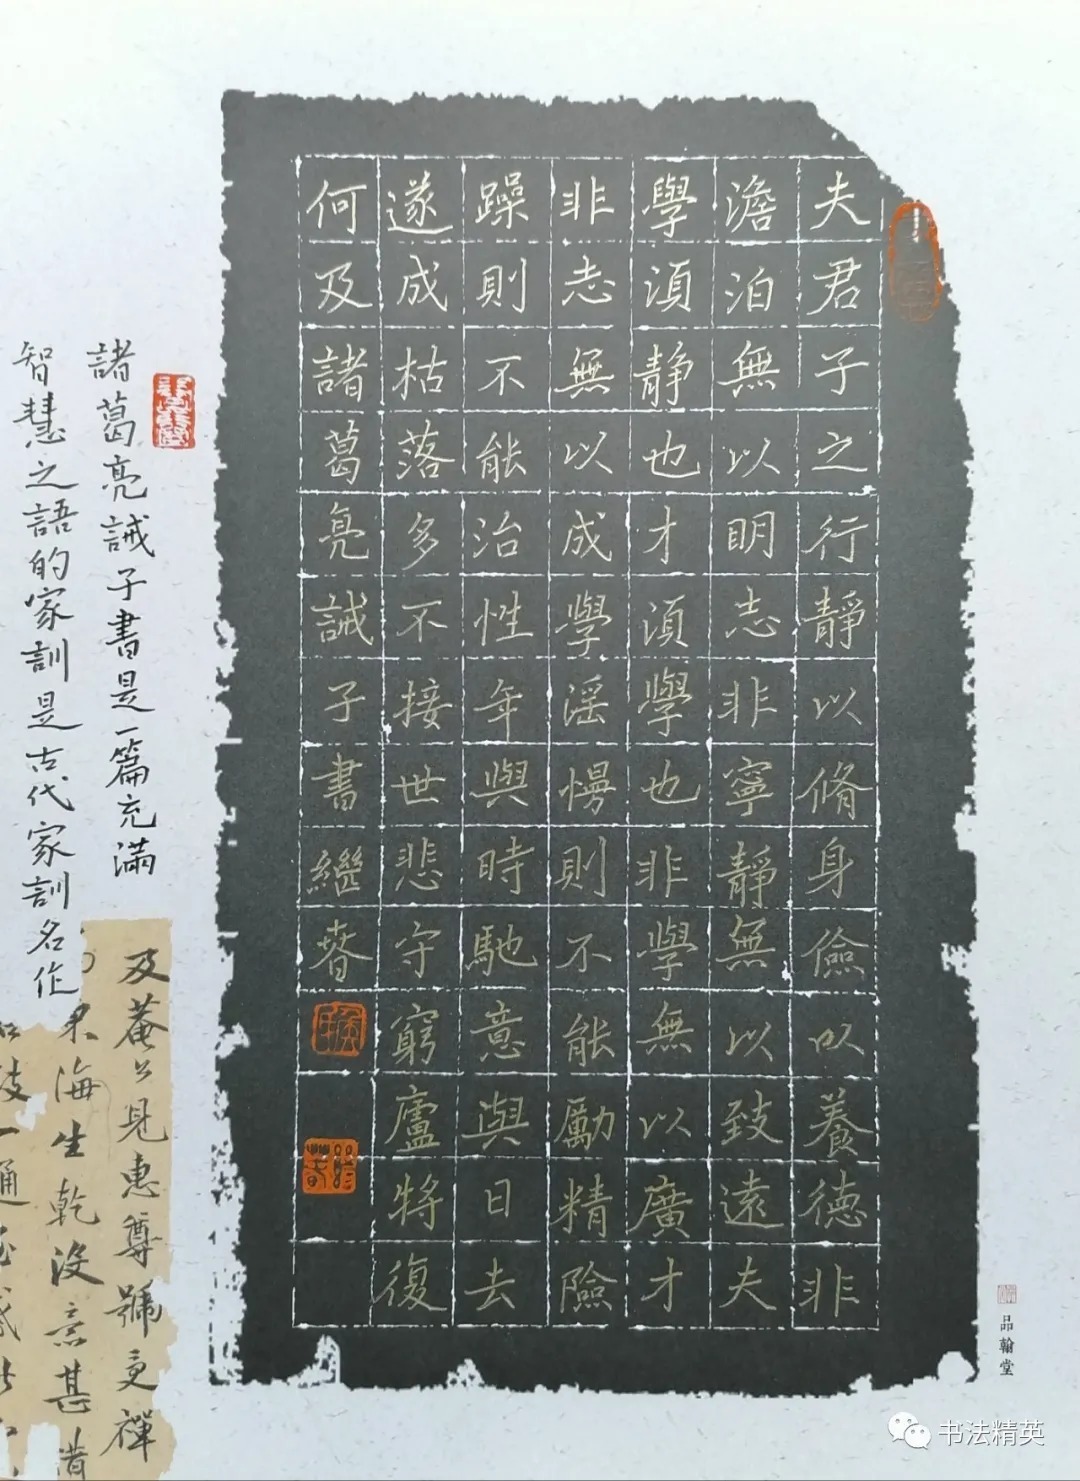 夫君子之行靜以脩身儉以養德非
澹泊無以明志非寧靜無以致遠夫
學須静也才須學也非學無以廣才
非志無以成學淫慢則不能勵精險
躁則不能治性年與時馳意與日去
遂成枯落多不接世悲守窮廬將復
何及諸葛亮誡子書繼春
諸葛亮誡子書是一篇充滿
智慧之語的家訓是古代家訓名作
及菴公見惠尊號更禪
海生乾没言甚
品翰堂
书法精英